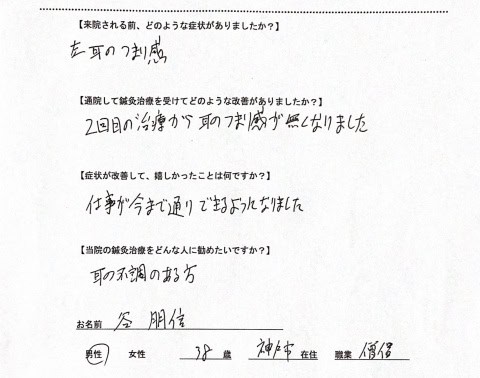 【来院される前、どのような症状がありましたか？】
左耳のつまり感
【通院して鍼灸治療を受けてどのような改善がありましたか？】
2回目の治療から耳のつまり感が無くなりました
【症状が改善して、嬉しかったことは何ですか？】
仕事が今まで通りできるようになりました
【当院の鍼灸治療をどんな人に勧めたいですか？】
耳の不調のある方
お名前 谷 朋信
男性 女性 38 歳 神戸市 在住 職業 僧侶